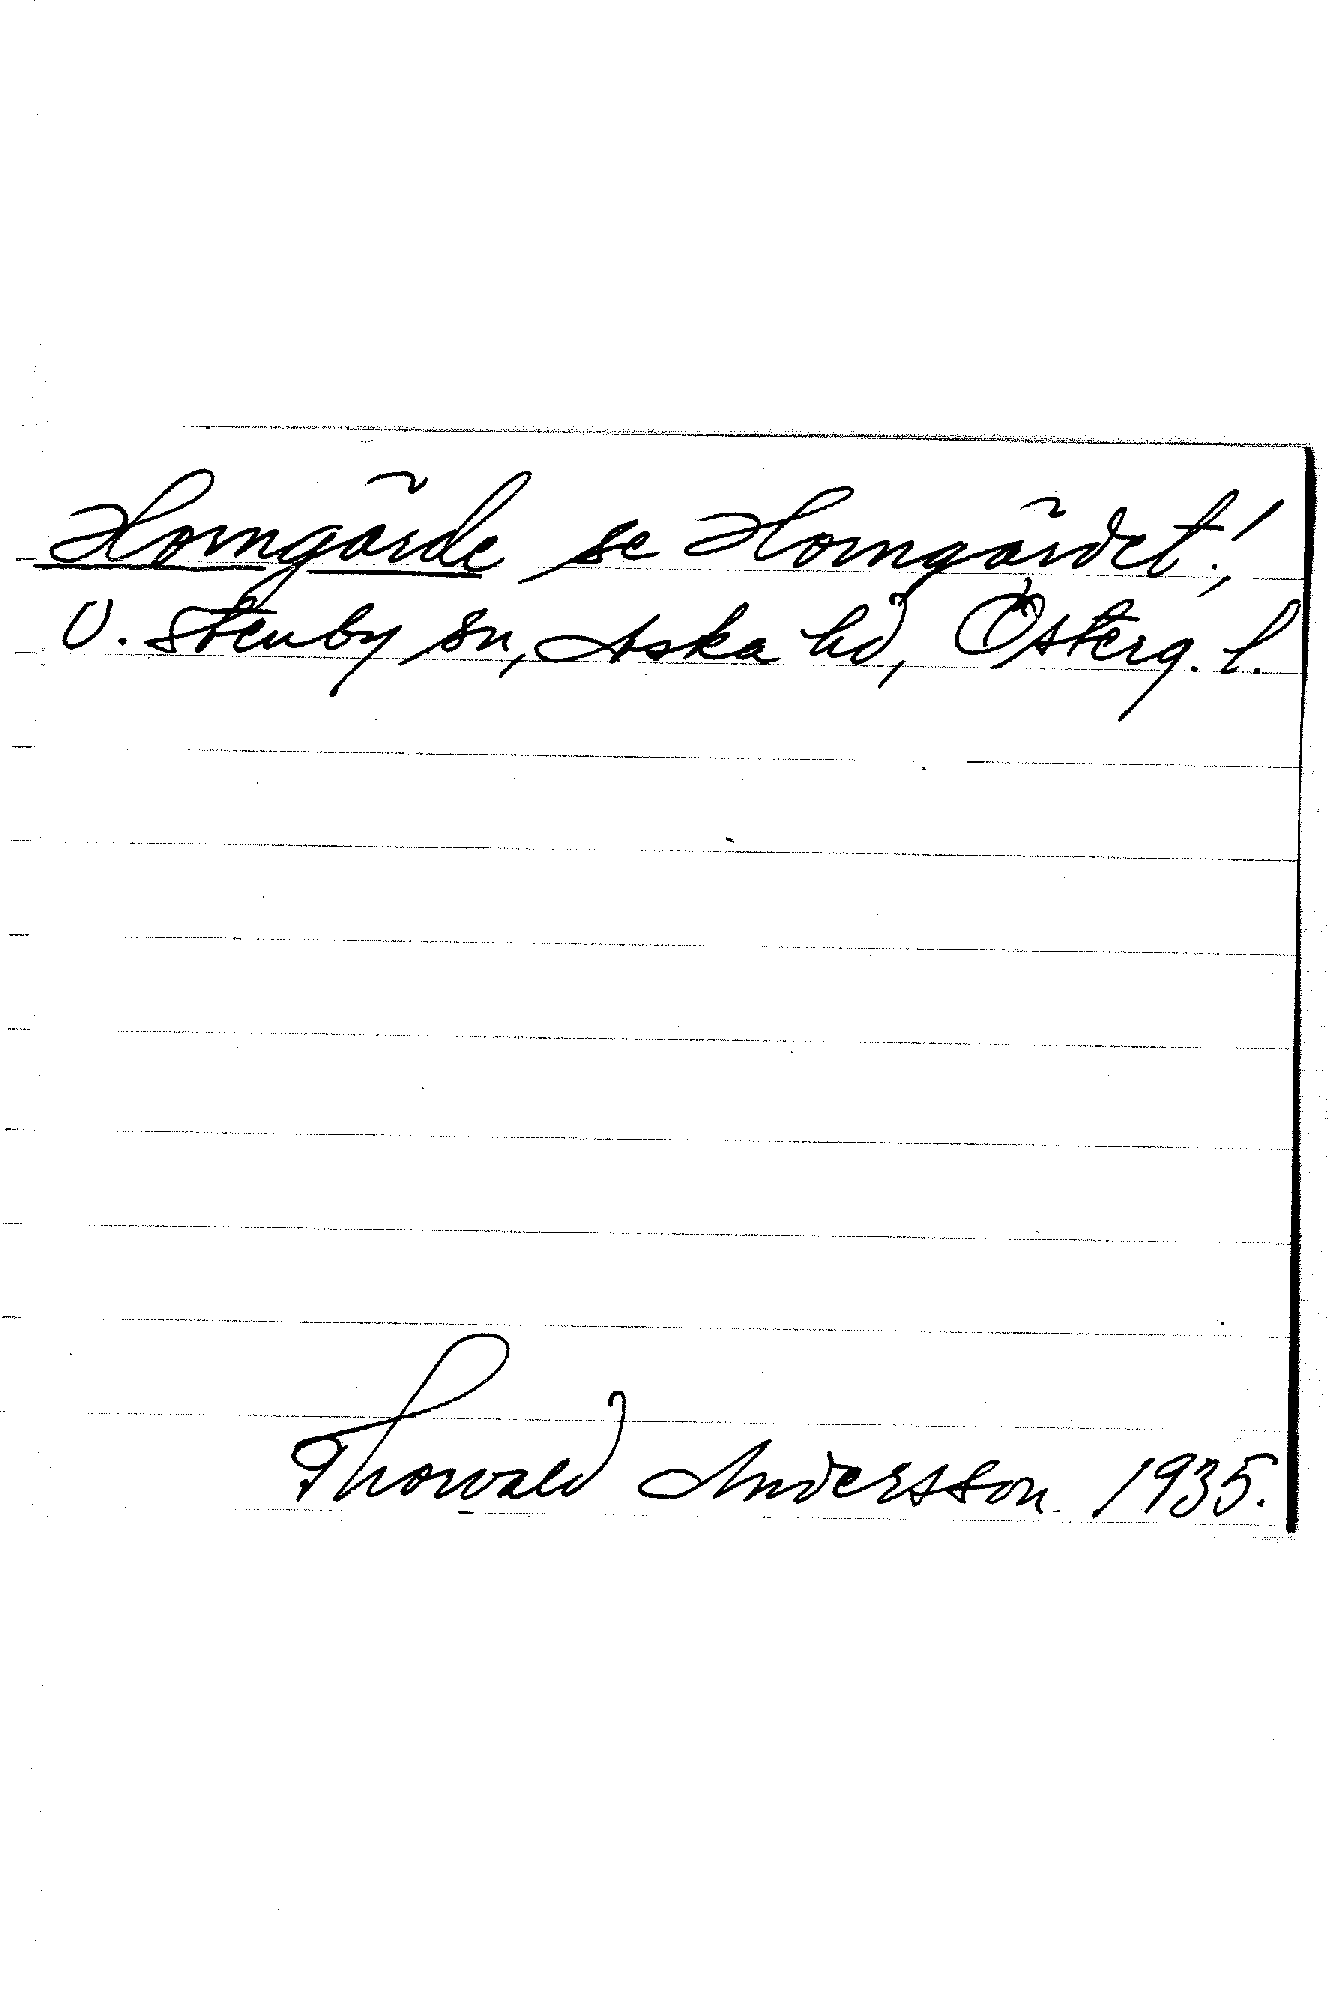 Horngärde se Horngärdet!
V. Stenby sn, Aska hd, Österg. l.
Thorvald Andersson 1935.